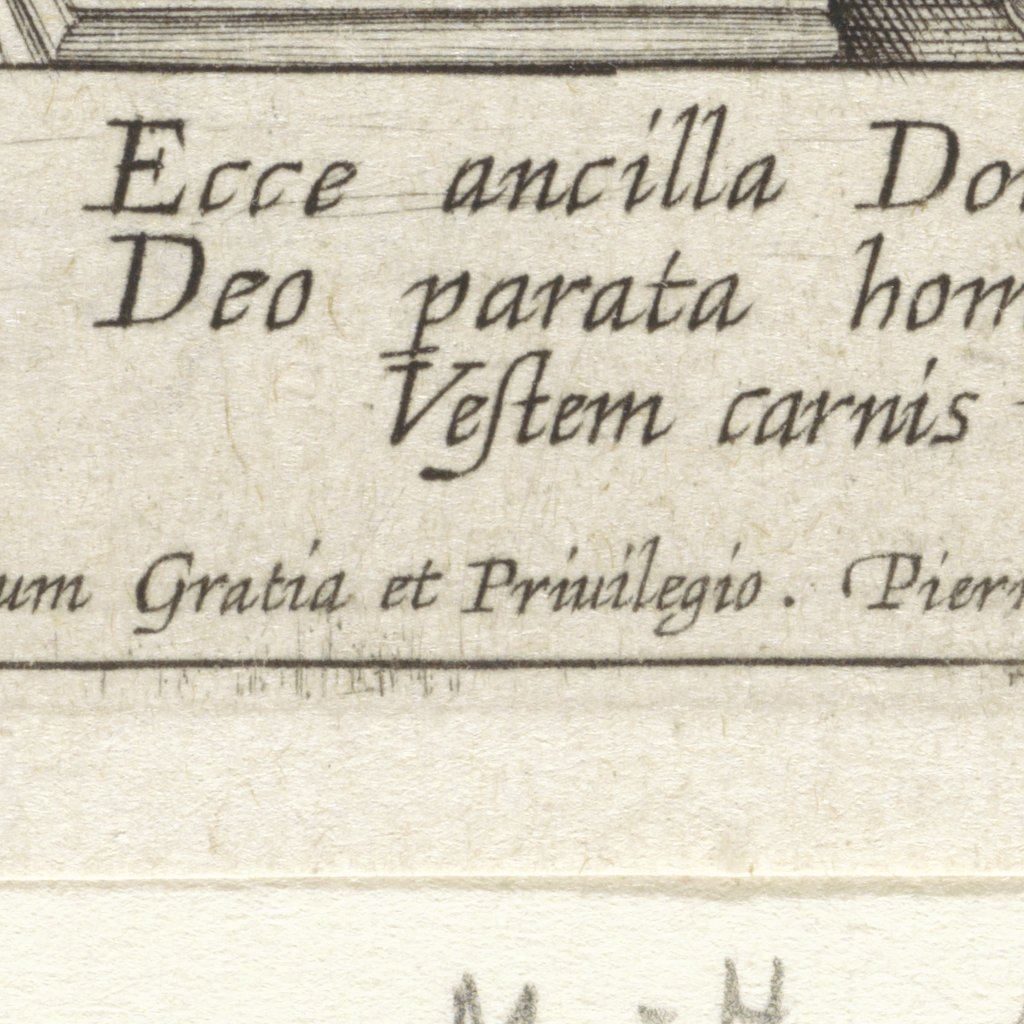 Ecce ancilla Do
Deo parata hom
Veſtem carnis
um Gratia et Priuilegio. Pierr